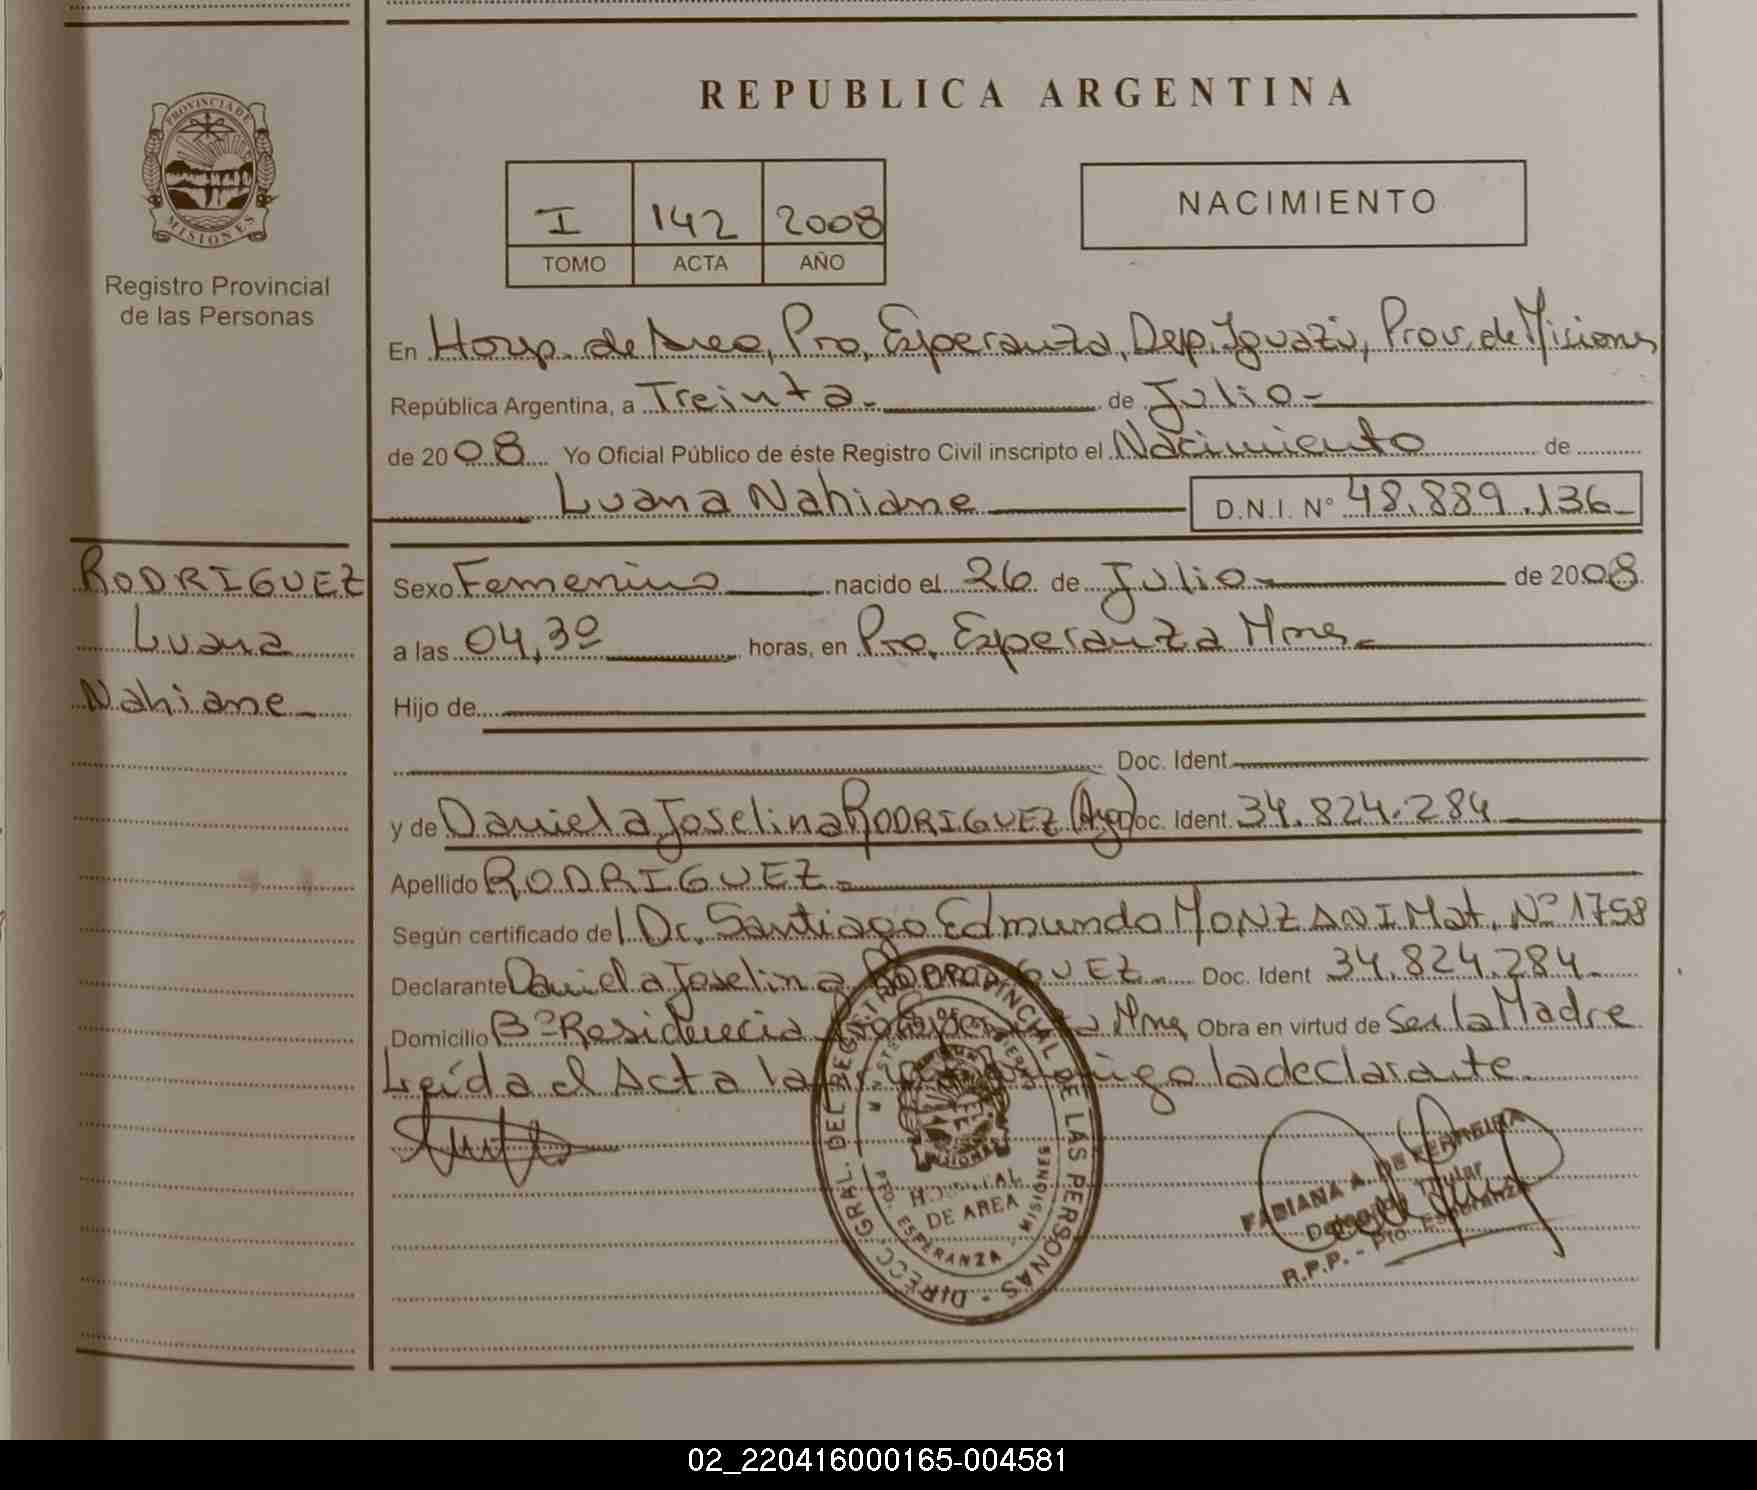 REPUBLICA ARGENTINA
PROVINCIA DE
MISIONES
Registro Provincial
de las Personas
I 142 2008
TOMO ACTA AÑO
NACIMIENTO
En Hosp. de Area, Pto, Esperanza, Dep. Iguazú, Prov. de Misiones
República Argentina, a Treinta.- de Julio-
de 2008 Yo Oficial Público de éste Registro Civil inscripto el Nacimiento de
Luana Nahiane D.N.I. Nº 48.889.136-
RODRIGUEZ
Luana
Nahiane-
Sexo Femenino nacido el 26 de Julio- de 2008
a las 04,30 horas, en Pto, Esperanza Mnes-
Hijo de
Doc. Ident.
y de Daniela Joselina RODRIGUEZ (Arg) Doc. Ident. 34.824.284
Apellido RODRIGUEZ-
Según certificado del Dr. Santiago Edmundo MONZANI Mat. Nº 1758
Declarante Daniela Joselina RODRIGUEZ- Doc. Ident 34.824.284-
Domicilio Bº Residencia Mnes Obra en virtud de Ser la Madre
Leída el Acta la declarante.
DIRECC. GRAL. DEL REGISTRO PROVINCIAL DE LAS PERSONAS -
MISIONES
HOSPITAL
DE AREA
PTO. ESPERANZA - MISIONES
FABIANA A. DE FERREIRA
Titular
R.P.P. - Pto. Esperanza
02_220416000165-004581